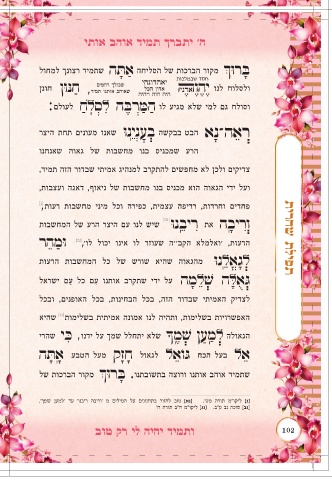 ה' יתברך תמיד אוהב אותי
בָּרוּךְ מקור הברכות של הסליחה אַתָּה שתמיד רצונך למחול
ולסלוח לנו יְהֹוָה חַנּוּן חונן
וסולח גם למי שלא מגיע לו הַמַּרְבֶּה לִסְלֹחַ לעולם:
רְאֵה־נָא הבט בבקשה בְעָנְיֵנוּ שאנו מעונים תחת היצר
הרע שמכניס בנו מחשבות של גאוה שאנחנו
צדיקים ולכן לא מחפשים להתקרב למנהיג אמיתי שבדור הזה תמיד,
ועל ידי הגאוה הוא מכניס בנו מחשבות של ניאוף, דאגה ועצבות,
פחדים וחרדות, רדיפה עצמית, כפירה וכל מיני מחשבות רעות,
וְרִיבָה את רִיבֵנוּ שיש לנו עם היצר הרע של המחשבות
הרעות, ואלמלא הקב״ה שעוזר לו אינו יכול לו, וּמַהֵר
לְגָאֳלֵנוּ מהגאוה שהיא שורש של כל המחשבות הרעות
גְּאֻלָּה שְׁלֵמָה על ידי שתקרב אותנו עם כל עם ישראל
לצדיק האמיתי שבדור הזה, בכל הבחינות, בכל האופנים, ובכל
האפשרויות בשלימות, ותהיה לנו אמונה אמיתית בשלימות שהיא
הגאולה לְמַעַן שְׁמֶךָ שלא יתחלל שמך על ידנו, כִּי שהרי
אֵל בעל הכח גּוֹאֵל לגאול חָזָק מעל הטבע אָתָּה
שתמיד אוהב אותנו ורוצה בתשובתנו, בָּרוּךְ מקור הברכות של
ותמיד יהיה לי רק טוב
102
תפילת שחרית